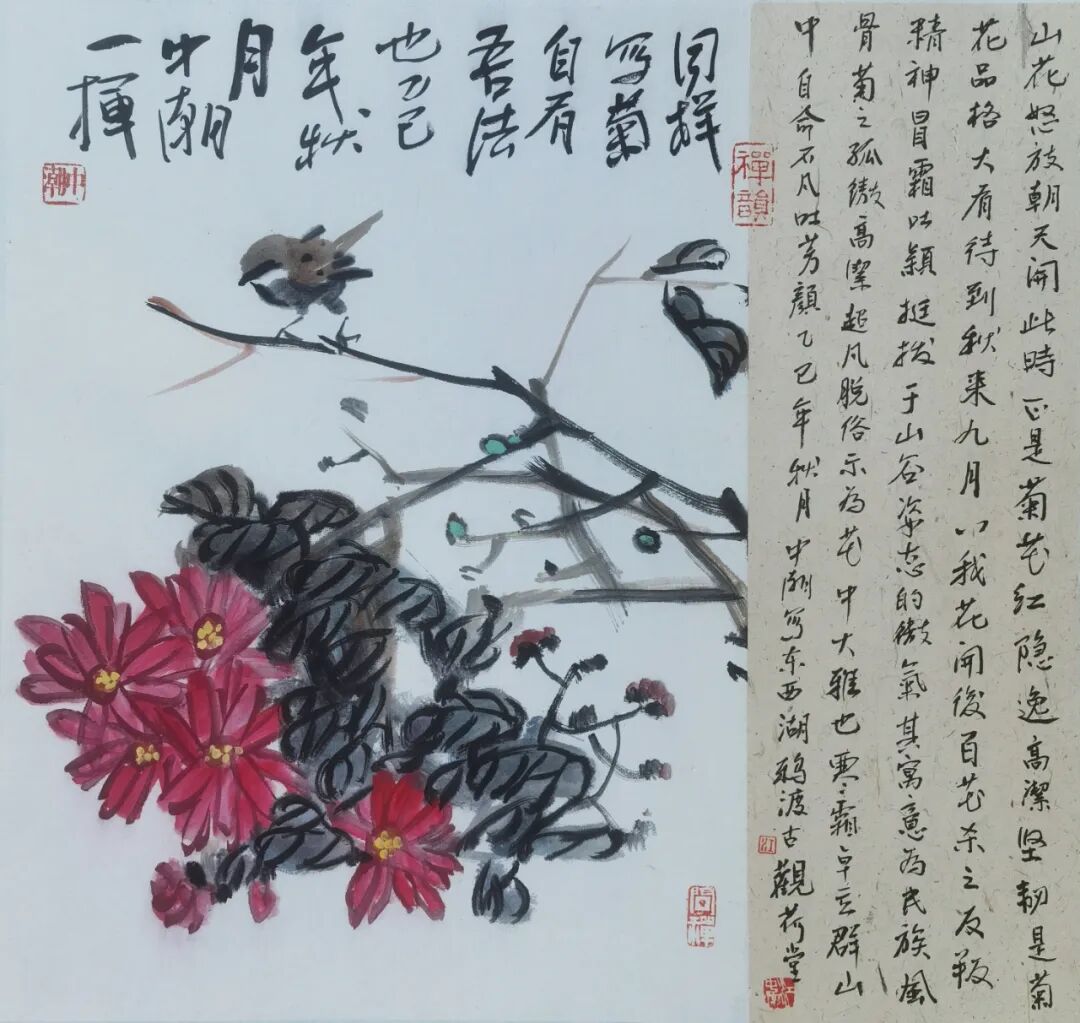 山花怒放朝天開此時正是菊花红隐逸高潔坚韧是菊
花品格大有待到秋来九月八我花開後百花杀之反叛
精神冒霜吐颖挺拔于山谷姿态的傲氣其寓意為民族風
骨菊之孤傲高潔超凡脱俗示為花中大雅也寒霜卓立群山
中自命不凡吐芳顔乙巳年秋月中潮写东西湖鸦渡古觀荷堂
禪韻
同样
写菊
自有
吾法
也乙巳
年秋
月
中潮
一揮
中潮